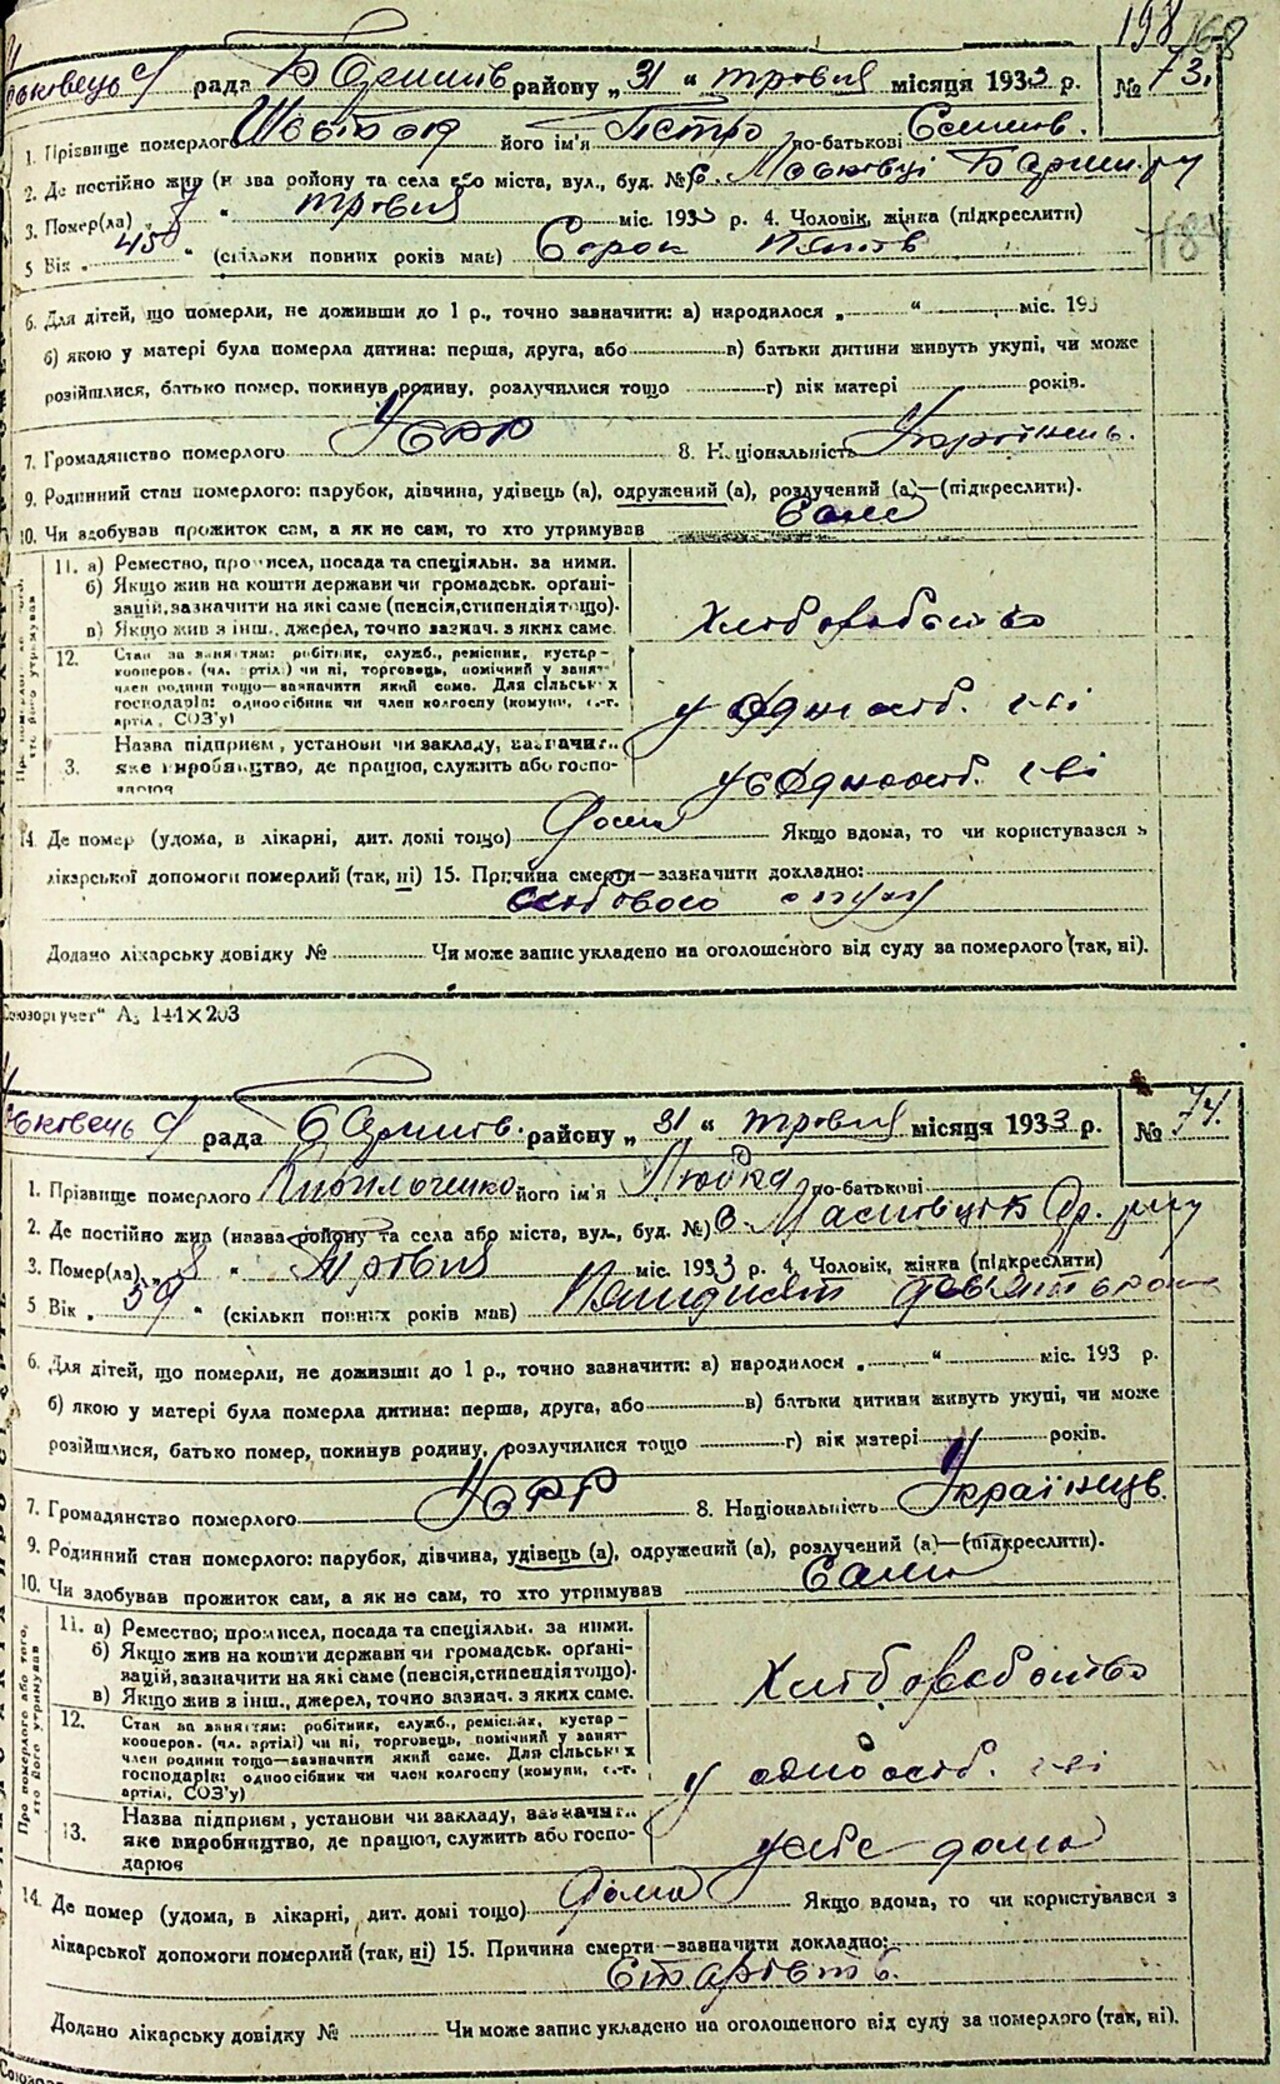 198 168
рада Баришів району „31“ травня місяця 1933 р. № 73.
1. Прізвище померлого його ім'я Петро по-батькові Семенов.
2. Де постійно жив (назва району та села або міста, вул., буд. №) с. Масківці Бариш. р-ну
3. Помер(ла) „8“ травня міс. 1933 р. 4. Чоловік, жінка (підкреслити)
5 Вік „45“ (скільки повних років мав) Сорок пять
6. Для дітей, що померли, не доживши до 1 р., точно зазначити: а) народилося „ “ міс. 193
б) якою у матері була померла дитина: перша, друга, або в) батьки дитини живуть укупі, чи може
розійшлися, батько помер, покинув родину, розлучилися тощо г) вік матері років.
7. Громадянство померлого УСРР 8. Національність Українець.
9. Родинний стан померлого: парубок, дівчина, удівець (а), одружений (а), розлучений (а)—(підкреслити).
10. Чи здобував прожиток сам, а як не сам, то хто утримував Сам
11. а) Ремество, промисел, посада та спеціяльн. за ними.
б) Якщо жив на кошти держави чи громадськ. орґані-
зацій, зазначити на які саме (пенсія, стипендія тощо).
в) Якщо жив з інш., джерел, точно зазнач. з яких саме.
Хліборобство
12. Стан за заняттям: робітник, служб., ремісник, кустар-
кооперов. (чл. артілі) чи ні, торговець, помічний у занят
член родини тощо—зазначити який саме. Для сільських
господарів: одноосібник чи член колгоспу (комуни, с.-г.
артілі, СОЗ'у)
у одноосіб. г-ві
3. Назва підприєм, установи чи закладу, зазначит..
яке виробництво, де працював, служить або госпо-
дарює
у одноосіб. г-ві
14 Де помер (удома, в лікарні, дит. домі тощо) Дома Якщо вдома, то чи користувався з
лікарської допомоги померлий (так, ні) 15. Причина смерти—зазначити докладно:
Додано лікарську довідку № Чи може запис укладено на оголошеного від суду за померлого (так, ні).
Союзоргучет" А₅ 141×203
рада Баришів. району „31“ травня місяця 1933 р. № 74.
1. Прізвище померлого його ім'я Любка по-батькові
2. Де постійно жив (назва району та села або міста, вул., буд. №) с. Масковці Бр. р-ну
3. Помер(ла) „8“ Травня міс. 1933 р. 4. Чоловік, жінка (підкреслити)
5 Вік „59“ (скільки повних років мав)
6. Для дітей, що померли, не доживши до 1 р., точно зазначити: а) народилося „ “ міс. 193 р.
б) якою у матері була померла дитина: перша, друга, або в) батьки дитини живуть укупі, чи може
розійшлися, батько помер, покинув родину, розлучилися тощо г) вік матері років.
7. Громадянство померлого УСРР 8. Національність Українець.
9. Родинний стан померлого: парубок, дівчина, удівець (а), одружений (а), розлучений (а)—(підкреслити).
10. Чи здобував прожиток сам, а як не сам, то хто утримував Сама
Про померлого або того, хто його утримував
11. а) Ремество, промисел, посада та спеціяльн. за ними.
б) Якщо жив на кошти держави чи громадськ. орґані-
зацій, зазначити на які саме (пенсія, стипендія тощо).
в) Якщо жив з інш., джерел, точно зазнач. з яких саме.
Хліборобство
12. Стан за заняттям: робітник, служб., ремісник, кустар-
кооперов. (чл. артілі) чи ні, торговець, помічний у занят
член родини тощо—зазначити який саме. Для сільських
господарів: одноосібник чи член колгоспу (комуни, с.-г.
артілі, СОЗ'у)
у одноосіб. г-ві
13. Назва підприєм, установи чи закладу, зазначит..
яке виробництво, де працював, служить або госпо-
дарює
у себе дома
14. Де помер (удома, в лікарні, дит. домі тощо) Дома Якщо вдома, то чи користувався з
лікарської допомоги померлий (так, ні) 15. Причина смерти—зазначити докладно:
Старість.
Додано лікарську довідку № Чи може запис укладено на оголошеного від суду за померлого (так, ні).